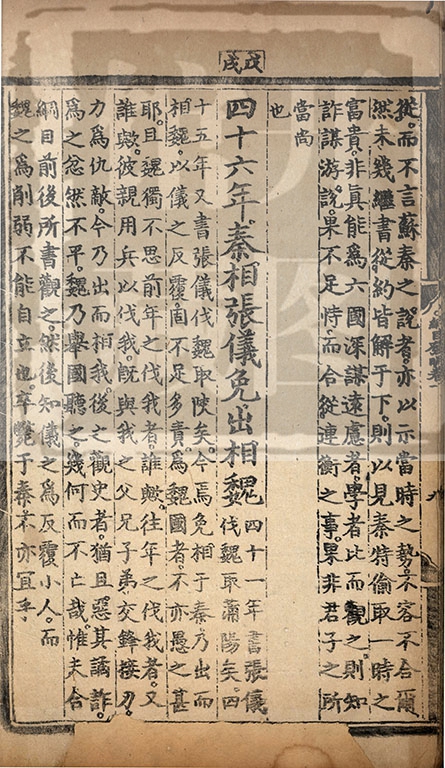 戊戌
從。而不言蘇秦之說者。亦以示當時之勢。不容不合爾
然未幾繼書從約皆解于下。則以見秦特偷取一時之
富貴。非真能爲六國深謀遠慮者。學者比而觀之。則知
詐謀游說。果不足恃。而合從連衡之事。果非君子之所
當尚
也
四十六年。秦相張儀免出相魏
四十一年書張儀
伐魏取蒲陽矣。四
十五年又書張儀伐魏取陝矣。今焉免相于秦。乃出而
相魏。以儀之反覆。固不足多責。爲魏國者。不亦愚之甚
耶。且魏獨不思前年之伐我者誰歟。往年之伐我者。又
誰歟。彼親用兵以伐我。旣與我之父兄子弟交鋒接刃。
力爲仇敵。今乃出而相我。後之觀史者。猶且惡其譎詐。
爲之忿然不平。魏乃擧國聽之。幾何而不亡哉。惟未合
綱目前後所書觀之。然後知儀之爲反覆小人。而
魏之爲削弱不能自立也。卒斃于秦。不亦宜乎。